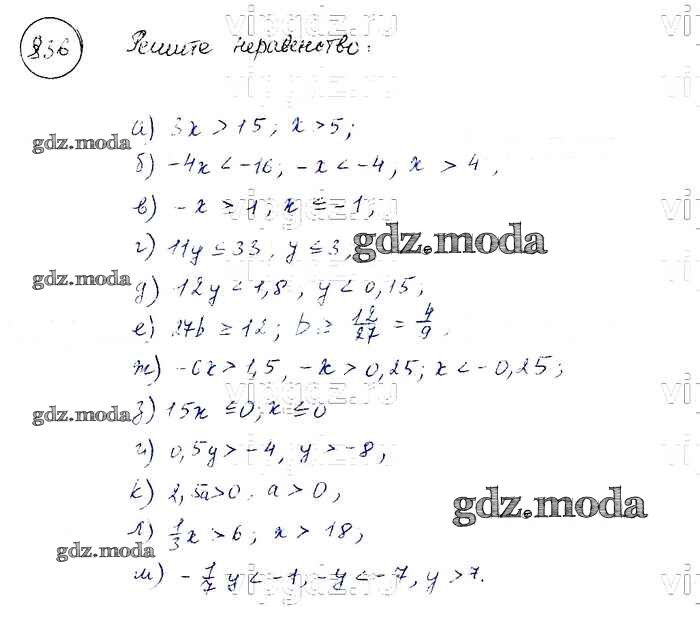 836 Решите неравенство:
а) 3x > 15; x > 5;
б) -4x < -16; -x < -4, x > 4,
в) -x ≥ 1, x ≤ -1,
г) 11y ≤ 33, y ≤ 3,
д) 12y < 1,8, y < 0,15,
е) 27b ≥ 12; b ≥ 12/27 = 4/9,
ж) -6x > 1,5, -x > 0,25; x < -0,25;
з) 15x ≤ 0, x ≤ 0
и) 0,5y > -4, y > -8,
к) 2,5a > 0, a > 0,
л) 1/3 x > 6; x > 18,
м) -1/7 y < -1, -y < -7, y > 7.
gdz.moda
gdz.moda
gdz.moda
gdz.moda
gdz.moda
gdz.moda
vipgdz.ru
vipgdz.ru
vipgdz.ru
vipgdz.ru
vipgdz.ru
vipgdz.ru
vipgdz.ru